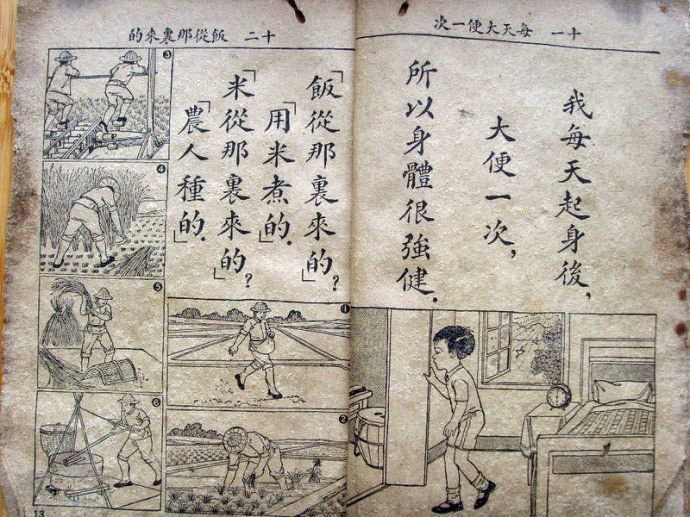 十一　每天大便一次
我每天起身後，
大便一次，
所以身體很強健．
十二　飯從那裏來的
「飯從那裏來的」？
「用米煮的」．
「米從那裏來的」？
「農人種的」．
1
2
3
4
5
6
13